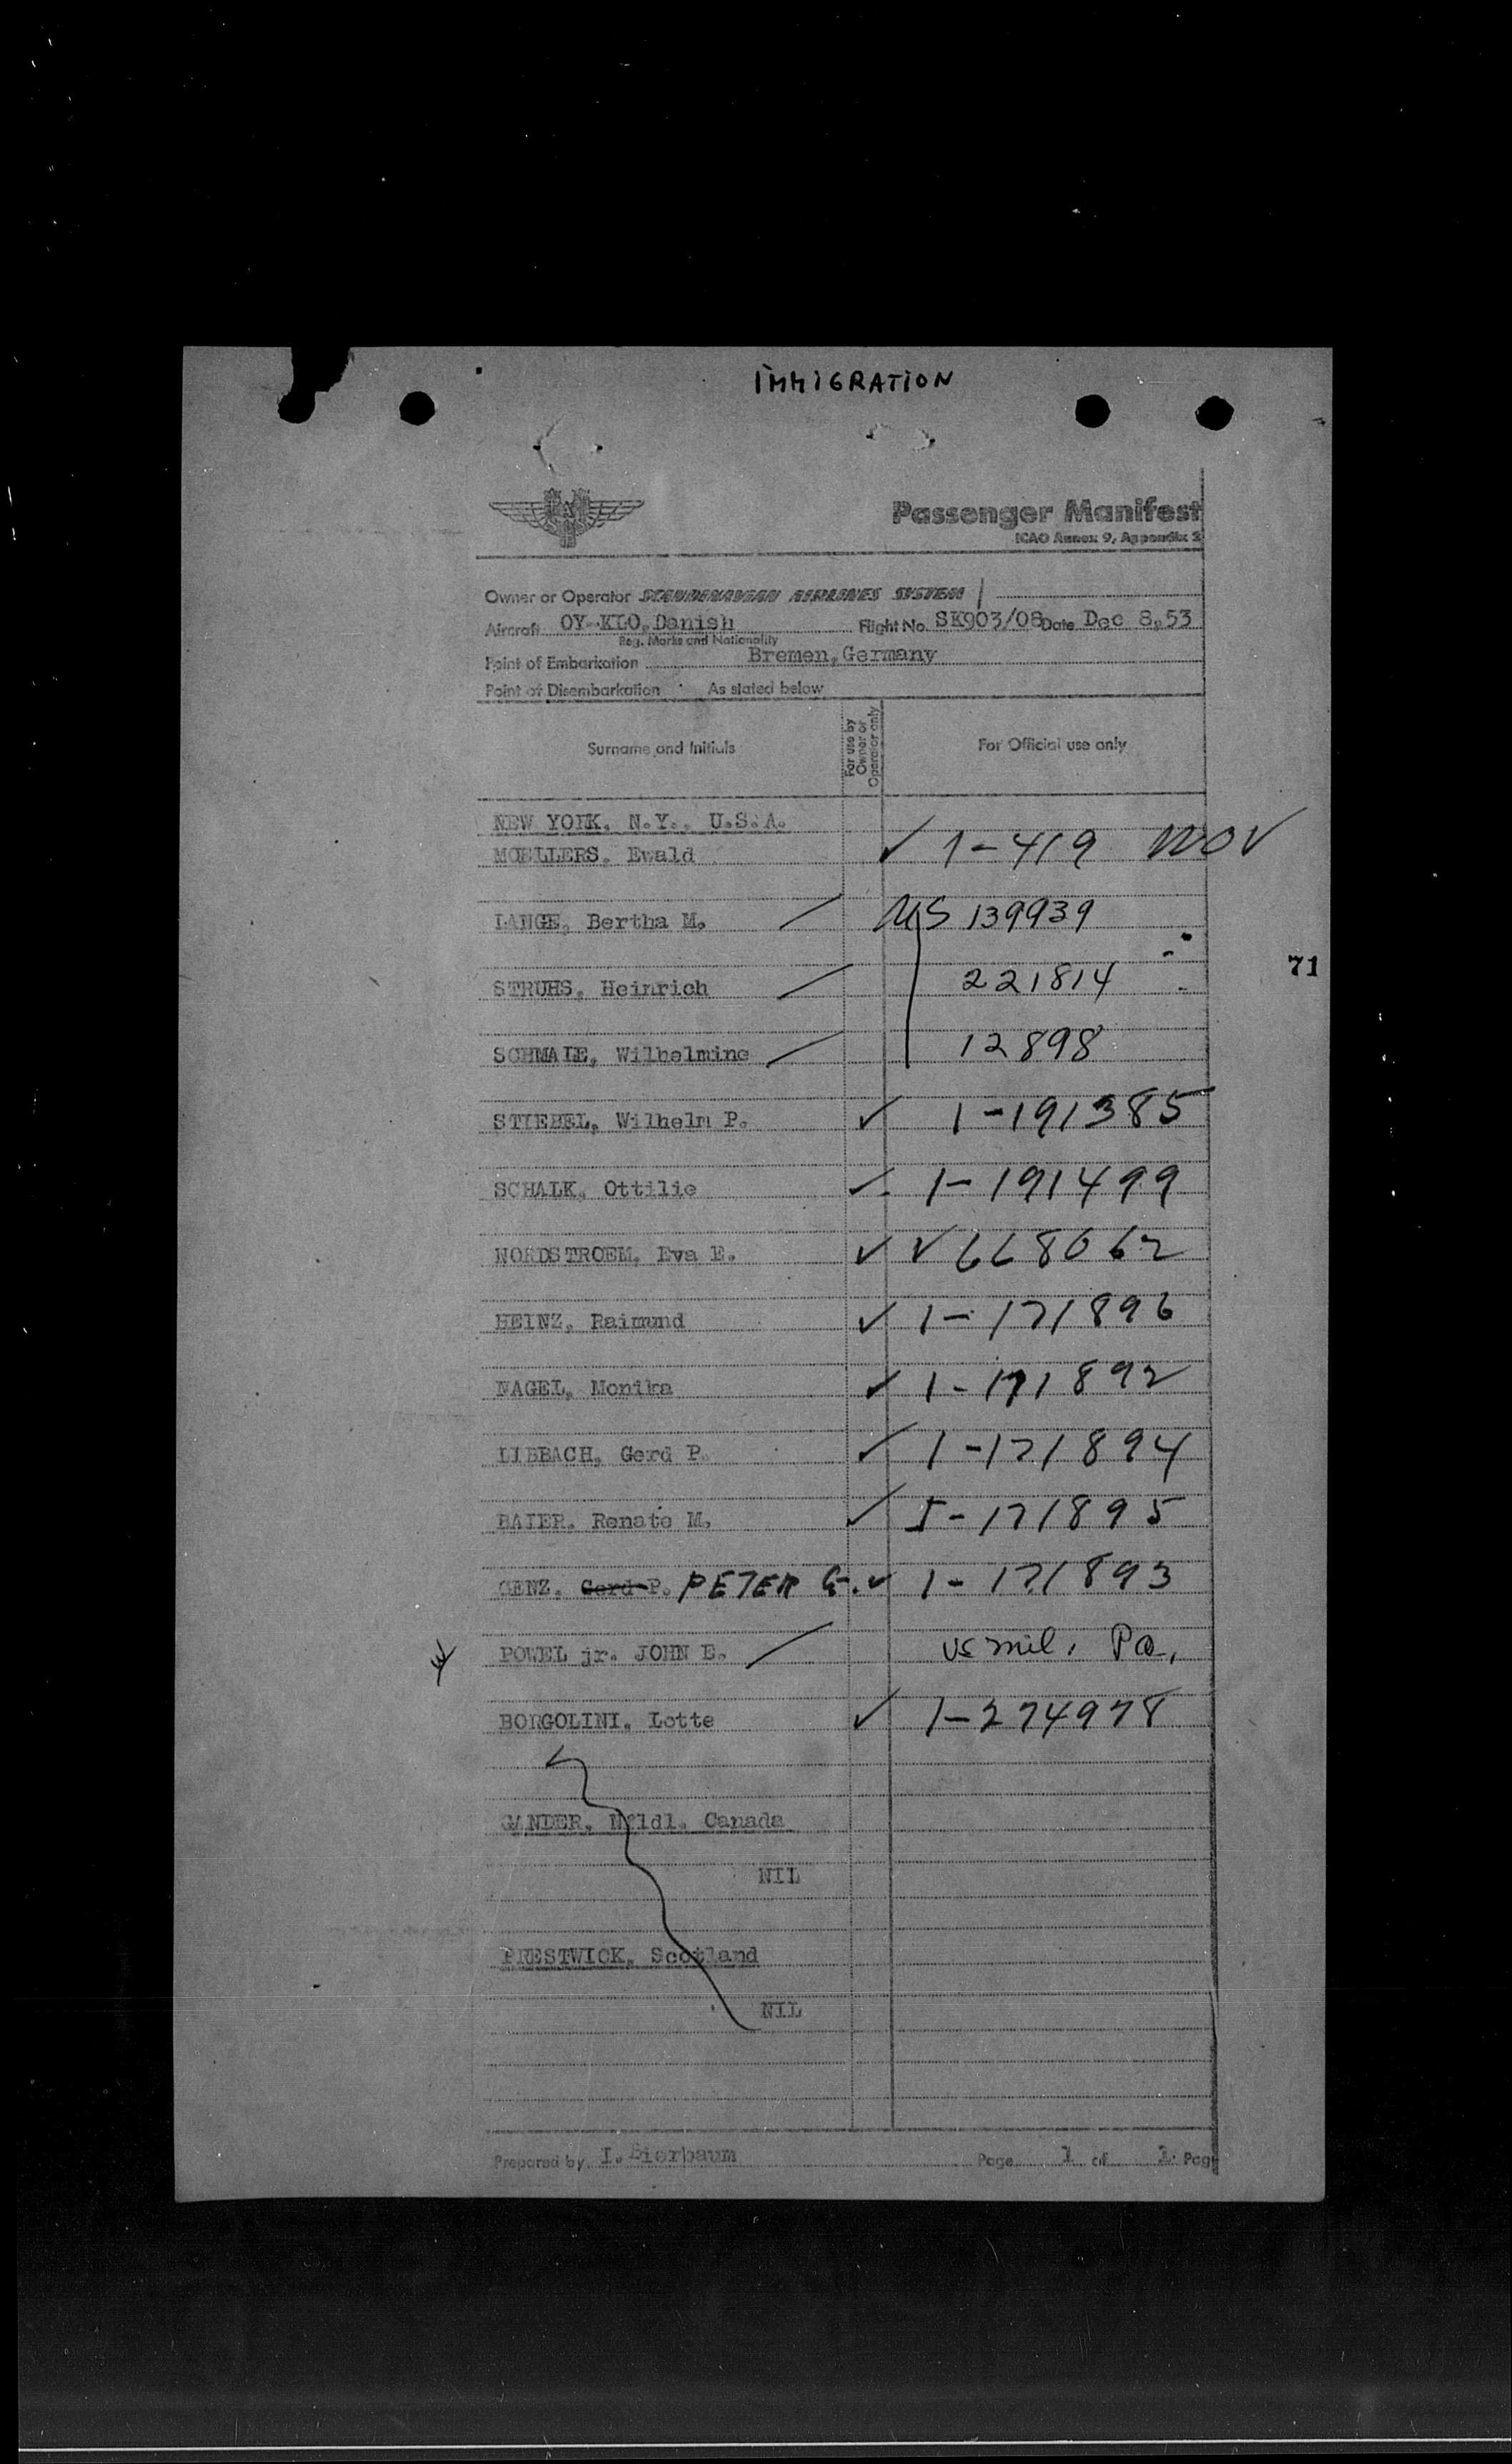 IMMIGRATION
Passenger Manifest
ICAO Annex 9, Appendix 2
Owner or Operator SCANDINAVIAN AIRLINES SYSTEM
Aircraft OY-KLO, Danish Flight No. SK903/08 Date Dec 8, 53
Reg. Marks and Nationality
Point of Embarkation Bremen, Germany
Point of Disembarkation As stated below
Surname and Initials For use by Owner or Operator only For Official use only
NEW YORK, N.Y., U.S.A.
MOELLERS, Ewald ✓ 1-419
LANGE, Bertha M. / US 139939
71
STRUHS, Heinrich / 221814
SCHMALE, Wilhelmine / 12898
STIEBEL, Wilhelm P. ✓ 1-191385
SCHALK, Ottilie ✓ 1-191499
NORDSTROEM, Eva E. ✓ V668062
HEINZ, Raimund ✓ 1-171896
NAGEL, Monika ✓ 1-171892
LIBBACH, Gerd P. ✓ 1-171894
BAIER, Renate M. ✓ 5-171895
GENZ, Gerd P. PETER G. ✓ 1-171893
POWEL jr. JOHN E. / US mil. Pa.
BORGOLINI, Lotte ✓ 1-274978
GANDER, Nfldl. Canada
NIL
PRESTWICK, Scotland
NIL
Prepared by I. Bierbaum Page 1 of 1 Page